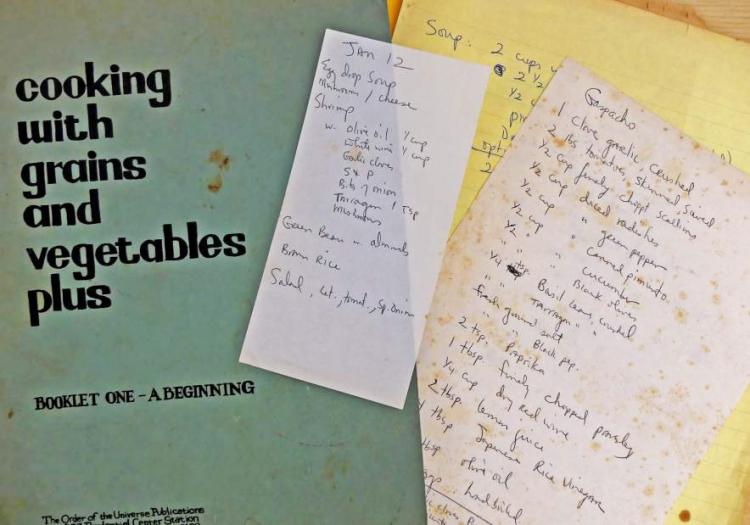 cooking
with
grains
and
vegetables
plus
BOOKLET ONE - A BEGINNING
The Order of the Universe Publications
Prudential Center Station
JAN 12
Egg drop Soup
Mushroom / cheese
Shrimp
w. olive oil ¼ cup
white wine ¼ cup
Garlic cloves
S & P
Bits of onion
Tarragon 1 Tsp
Mushrooms
Green Beans w. almonds
Brown Rice
Salad, Let., tomat., Sp. Onion
Soup: 2 cups
2 ½
½ c
2
Gaspacho
1 clove garlic crushed
2 lbs tomatoes, skinned,
½ cup finely chopt scallions
½ cup diced radishes
½ cup " green pepper
½ " " canned pimiento
½ cup " cucumber
" " Black olives
¼ tsp Basil leaves, crushed
" " Tarragon " "
fresh ground salt
" " Black pep.
2 tsp. Paprika
1 tbsp. finely chopped parsley
¼ cup dry red wine
2 tbsp. lemon juice
1 tbsp Japanese Rice Vinegar
tbsp olive oil